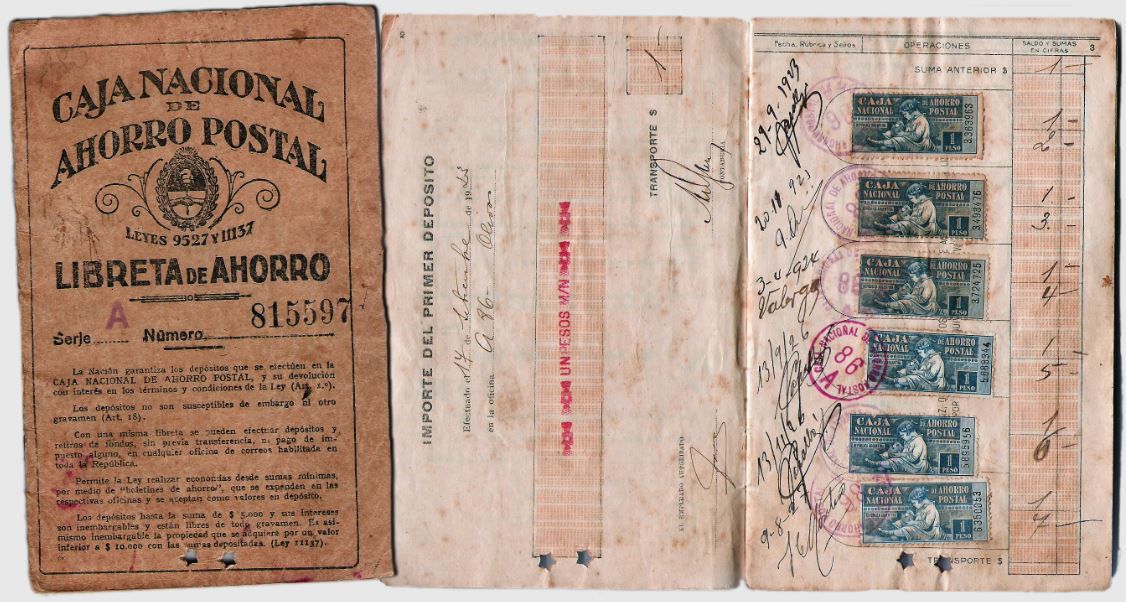 CAJA NACIONAL
DE
AHORRO POSTAL
LEYES 9527 Y 11137
LIBRETA DE AHORRO
Serie A Número 815597
La Nación garantiza los depósitos que se efectúen en la
CAJA NACIONAL DE AHORRO POSTAL, y su devolución
con interés en los términos y condiciones de la Ley (Art. 1.º).
Los depósitos no son susceptibles de embargo ni otro
gravamen (Art. 18).
Con una misma libreta se pueden efectuar depósitos y
retiros de fondos, sin previa transferencia, ni pago de im-
puesto alguno, en cualquier oficina de correos habilitada en
toda la República.
Permite la Ley realizar economías desde sumas mínimas,
por medio de "boletines de ahorro", que se expenden en las
respectivas oficinas y se aceptan como valores en depósito.
Los depósitos hasta la suma de $ 5.000 y sus intereses
son inembargables y están libres de todo gravamen. Es asi-
mismo inembargable la propiedad que se adquiera por un valor
inferior a $ 10.000 con las sumas depositadas. (Ley 11137).
IMPORTE DEL PRIMER DEPOSITO
Efectuado el 17 de Setiembre de 1923
en la oficina A 86
UN PESOS M/N
TRANSPORTE $ 1
CONTADURIA
EL EMPLEADO AUTORIZADO
Fecha, Rúbrica y Sellos
OPERACIONES
SALDO Y SUMAS
EN CIFRAS
3
SUMA ANTERIOR $ 1-
29-9-1923
CAJA NACIONAL DE AHORRO POSTAL
1 PESO
3363963
1-
2-
923
CAJA NACIONAL DE AHORRO POSTAL
1 PESO
3498476
1-
3.-
3-4-924
CAJA NACIONAL DE AHORRO POSTAL
1 PESO
3724725
1-
4-
CAJA NACIONAL DE AHORRO POSTAL
86
A
CAJA NACIONAL DE AHORRO POSTAL
1 PESO
1-
5-
CAJA NACIONAL DE AHORRO POSTAL
1 PESO
1-
6-
CAJA NACIONAL DE AHORRO POSTAL
1 PESO
6350053
1-
7-
TRANSPORTE $